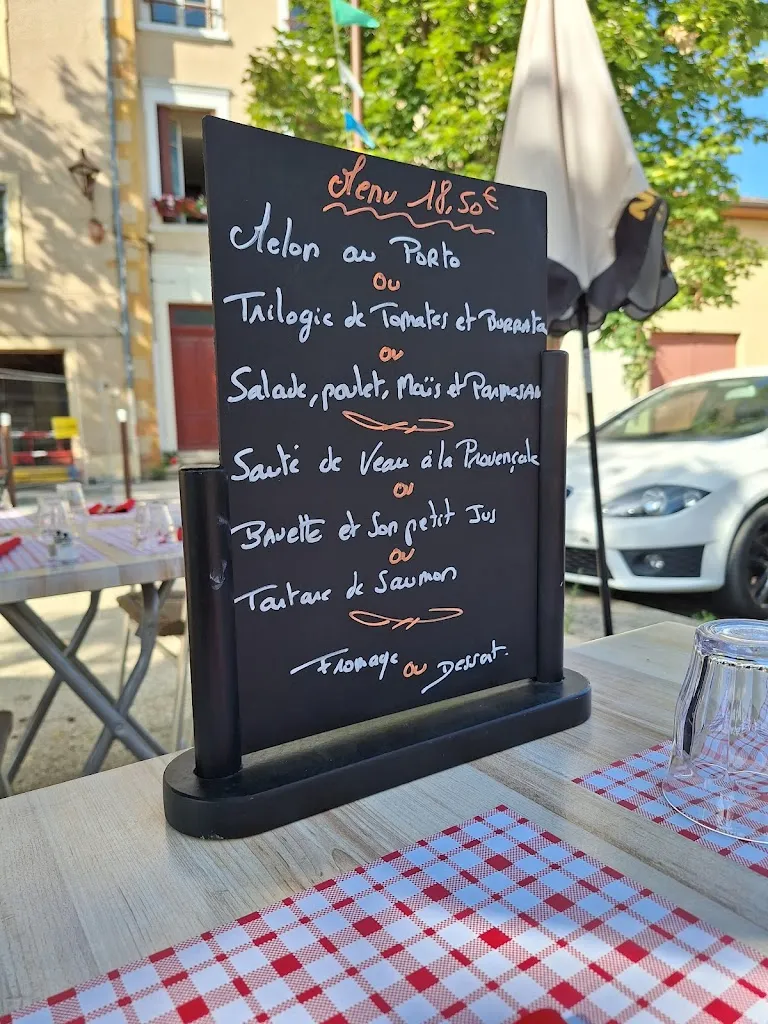 Menu 18,50€
Melon au Porto
ou
Trilogie de Tomates et Burrata
ou
Salade, poulet, Maïs et Parmesan
Sauté de Veau à la Provençale
ou
Bavette et Son petit Jus
ou
Tartare de Saumon
Fromage ou Dessert.